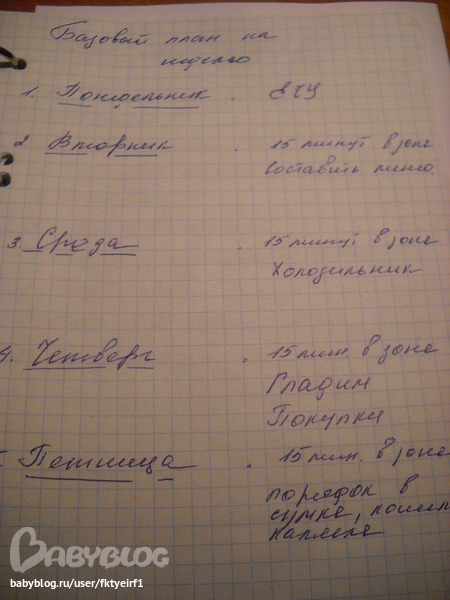 Базовый план на
неделю
1. Понедельник . ЕЧУ
2 Вторник . 15 минут в зоне
составить меню
3. Среда . 15 минут в зоне
Холодильник
4. Четверг . 15 мин. в зоне
Гладим
Покупки
Пятница . 15 мин. в зоне
порядок в
сумке,
BABYBLOG
babyblog.ru/user/fktyeirf1